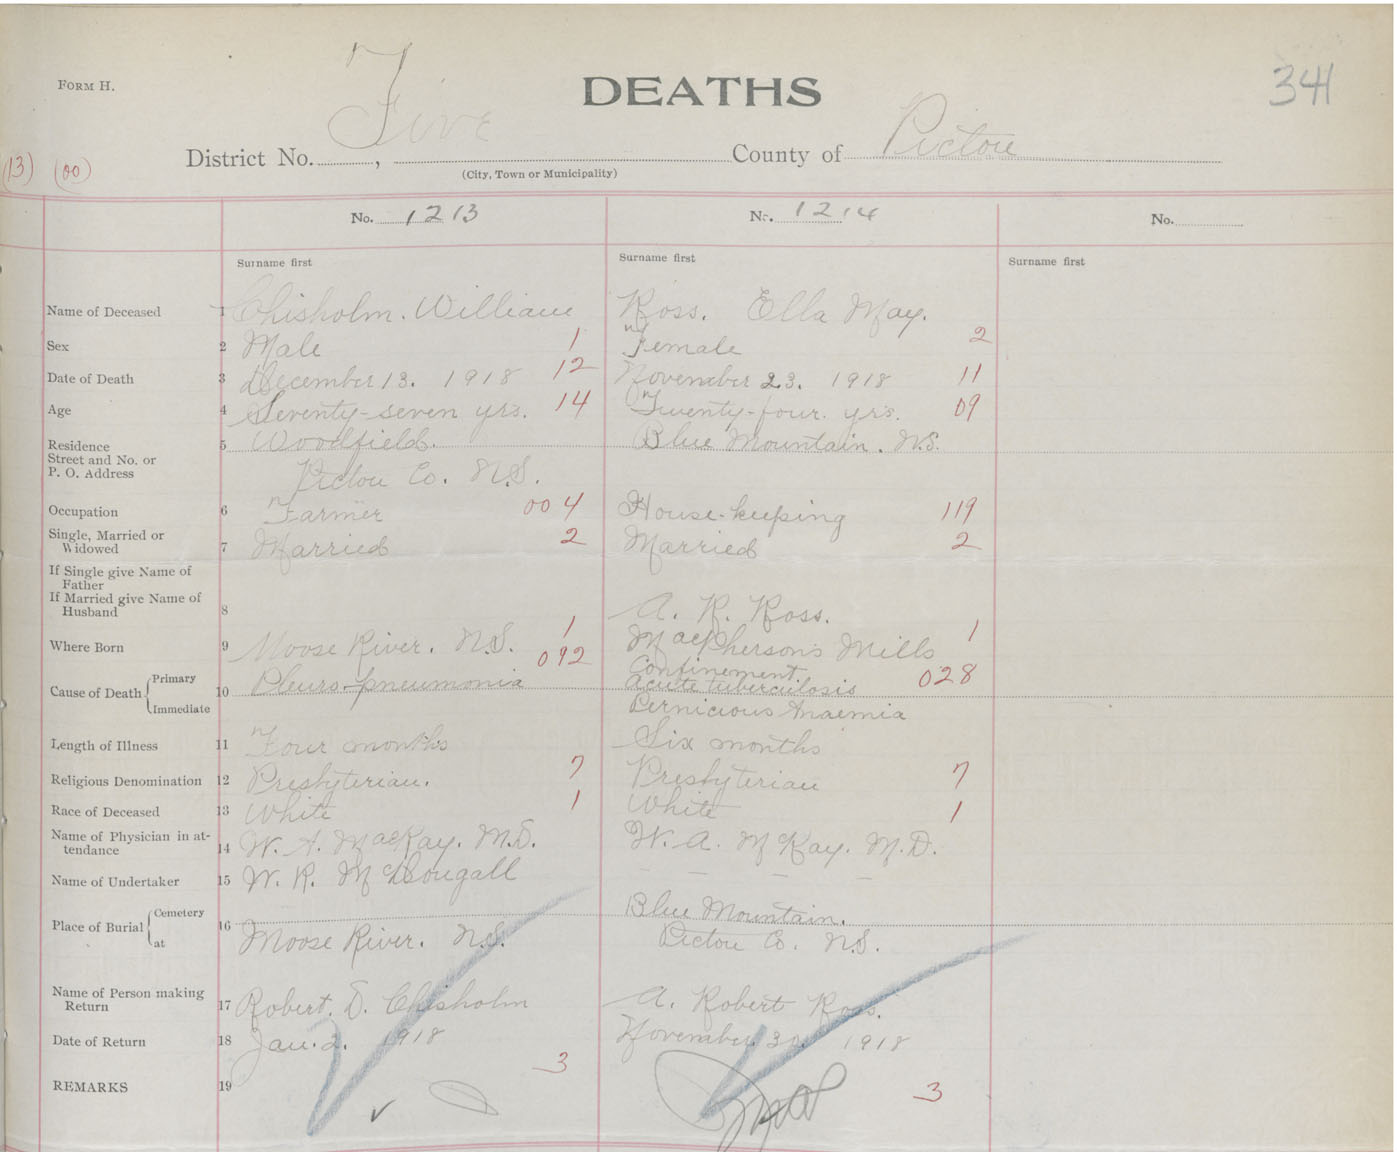 FORM H.
DEATHS
341
Five
Pictou
District No. , County of
(City, Town or Municipality)
(13) (00)
No. 1213 No. 1214 No.
Surname first Surname first Surname first
Name of Deceased 1 Chisholm. William Ross. Ella May.
Sex 2 Male 1 Female 2
Date of Death 3 December 13. 1918 12 November 23. 1918 11
Age 4 Seventy-seven yrs. 14 Twenty-four. yrs. 09
Residence 5 Woodfield. Blue Mountain. N.S.
Street and No. or
P. O. Address Pictou Co. N.S.
Occupation 6 Farmer 004 House-keeping 119
Single, Married or
Widowed 7 Married 2 Married 2
If Single give Name of
Father
If Married give Name of
Husband 8 A. R. Ross.
Where Born 9 Moose River. N.S. 1 MacPherson's Mills 1
Cause of Death Primary 10 Pleuro-pneumonia 092 Confinement. 028
Acute tuberculosis
Immediate Pernicious Anaemia
Length of Illness 11 Four months Six months
Religious Denomination 12 Presbyterian. 7 Presbyterian 7
Race of Deceased 13 White 1 White 1
Name of Physician in at-
tendance 14 W. A. MacKay. M.D. W. A. McKay. M.D.
Name of Undertaker 15 W. R. McDougall – – – –
Place of Burial Cemetery 16 Blue Mountain.
at Moose River. N.S. Pictou Co. N.S.
Name of Person making
Return 17 Robert. D. Chisholm A. Robert Ross.
Date of Return 18 Jan. 2. 1918 November. 30. 1918
3 3
REMARKS 19